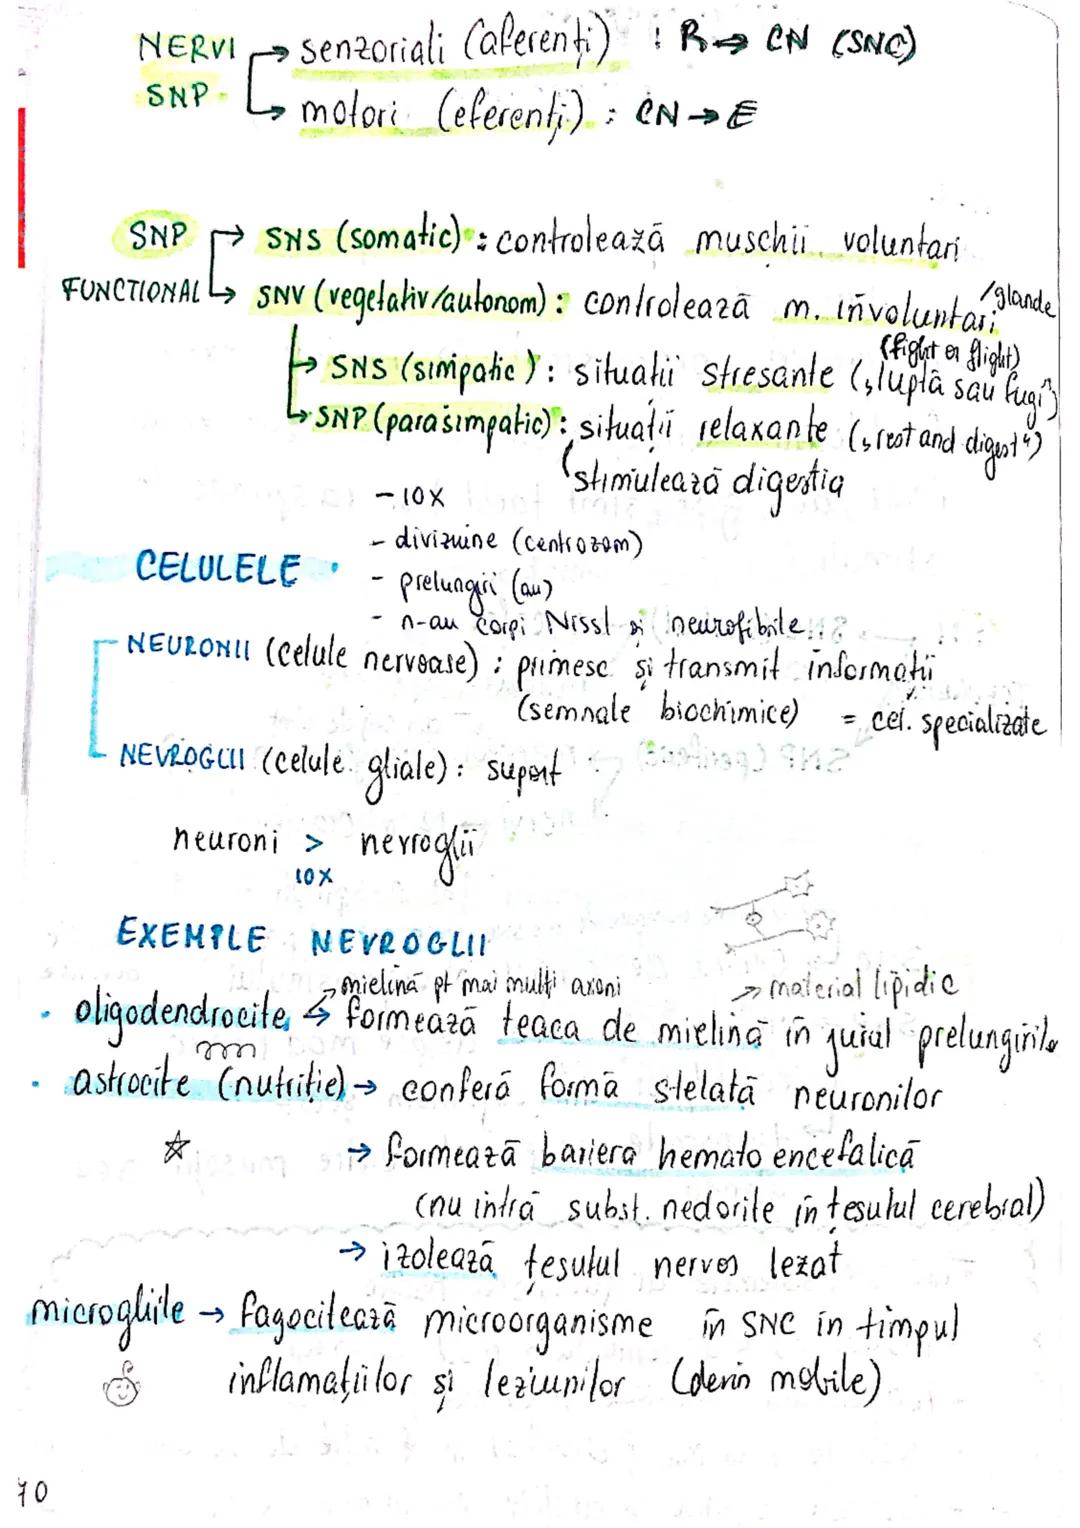 NERVI → senzoriali (aferenți) : R → CN (SNC)
SNP → motori (eferenți) : CN → E
SNP → SNS (somatic) : controlează muschii voluntari
FUNCTIONAL → SNV (vegetativ/autonom) : controlează m. involuntari /glande
(fight or flight)
→ SNS (simpatic) : situatii stresante („luptă sau fugi")
→ SNP (parasimpatic) : situații relaxante („rest and digest")
stimulează digestia
- 10X
- diviziune (centrozom)
CELULELE
- prelungiri (au)
- n-au corpi Nissl și neurofibrile
NEURONII (celule nervoase) : primesc și transmit informatii
(semnale biochimice) = cel. specializate
NEVROGLII (celule gliale) : suport
neuroni > nevroglii
10X
EXEMPLE NEVROGLII
→ mielină pt mai mulți axoni → material lipidic
• oligodendrocite → formează teaca de mielină în jurul prelungirile
• astrocite (nutriție) → conferă formă stelată neuronilor
→ formează bariera hemato encefalică
(nu intră subst. nedorite în țesutul cerebral)
→ izolează țesutul nervos lezat
microgliile → fagocitează microorganisme în SNC în timpul
inflamațiilor și leziunilor (devin mobile)
70